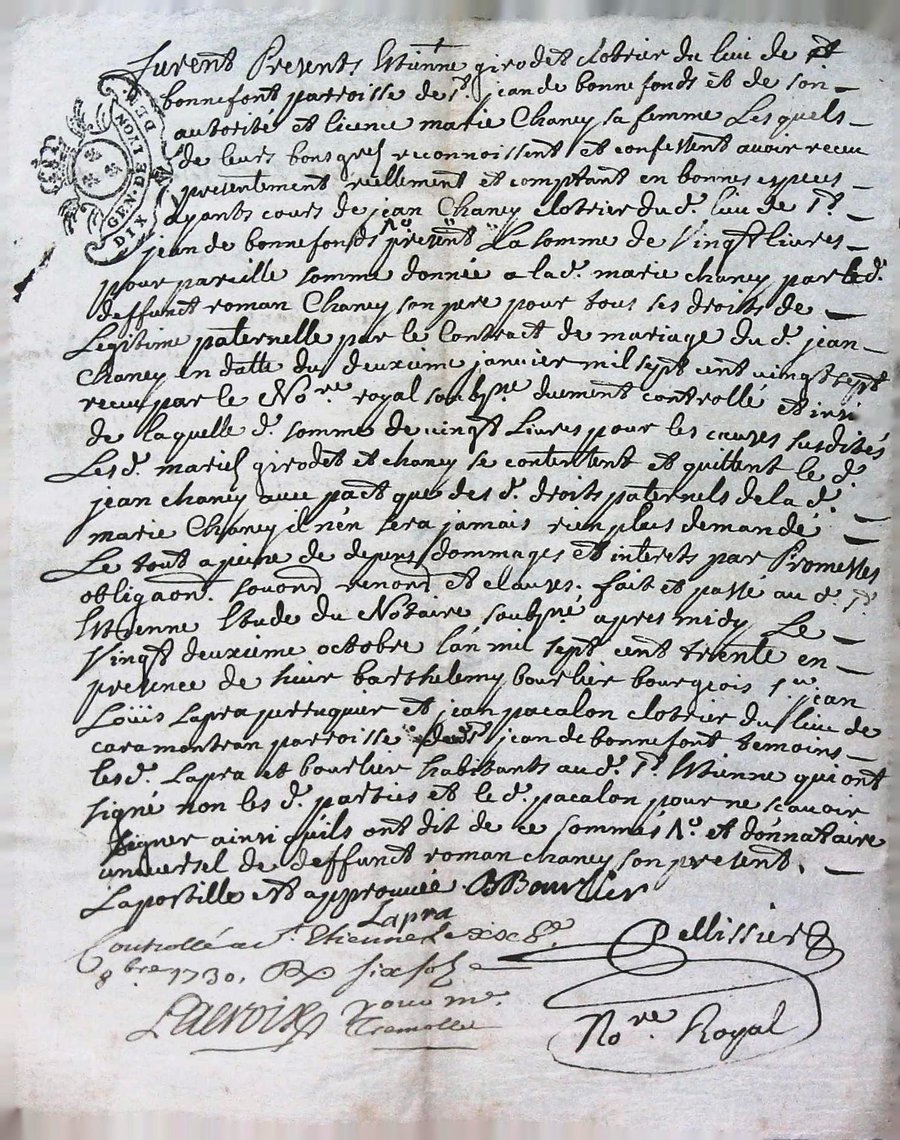 furent Presents Etienne girodet clotrier du lieu de st
bonnefont parroisse de st jean de bonnefonds et de son
autorité et licence marie Chaney sa femme Lesquels
de leurs bons grés reconnoissent et confessent avoir receu
presentement réellement et comptant en bonnes especes
ayants cours de jean Chaney clotrier du d. lieu de st
jean de bonnefonds No present La somme de Vingt livres
pour pareille somme donnée a la d. marie chaney par led.
deffunct roman Chaney son pere pour tous ses droits de
Legitime paternelle par le Contract de mariage du d. jean
Chaney en datte du deuxieme janvier mil sept cent vingt sept
receu par le No.re royal soubsne duement controllé et insi
de laquelle d. somme de vingt Livres pour les causes susdites
Lesd. mariés girodet et chaney se contentent et quittent le d.
jean chaney avec pact que des d. droits paternels de la d.
marie Chaney il n'en sera jamais rien plus demandé
Le tout a peine de depens dommages et interets par Promesses
obligaon. soumd renond et clauses. fait et passé au d. st
Etienne Etude du Notaire soubsné apres midy Le
Vingt deuxieme octobre l'an mil sept cent trente en
presence de sieur barthelemy bourlier bourgeois sr jean
Loüis Lapra perruquier et jean pacalon clotrier du lieu de
caramontran parroisse de st jean de bonnefont temoins
les d. Lapra et bourlier habitants au d. st Etienne qui ont
signé non les d. parties et le d. pacalon pour ne scavoir
signer ainsi quils ont dit de ce sommés No et donnataire
universel de deffunct roman chaney son present.
Lapostille est approuvée BBourlier
Lapra
Controllé a st Etienne le
8bre 1730. R six sols
Pellissier
Lacroix
Tremolle
No.re Royal
GEN. DE LION
DIX DEN.